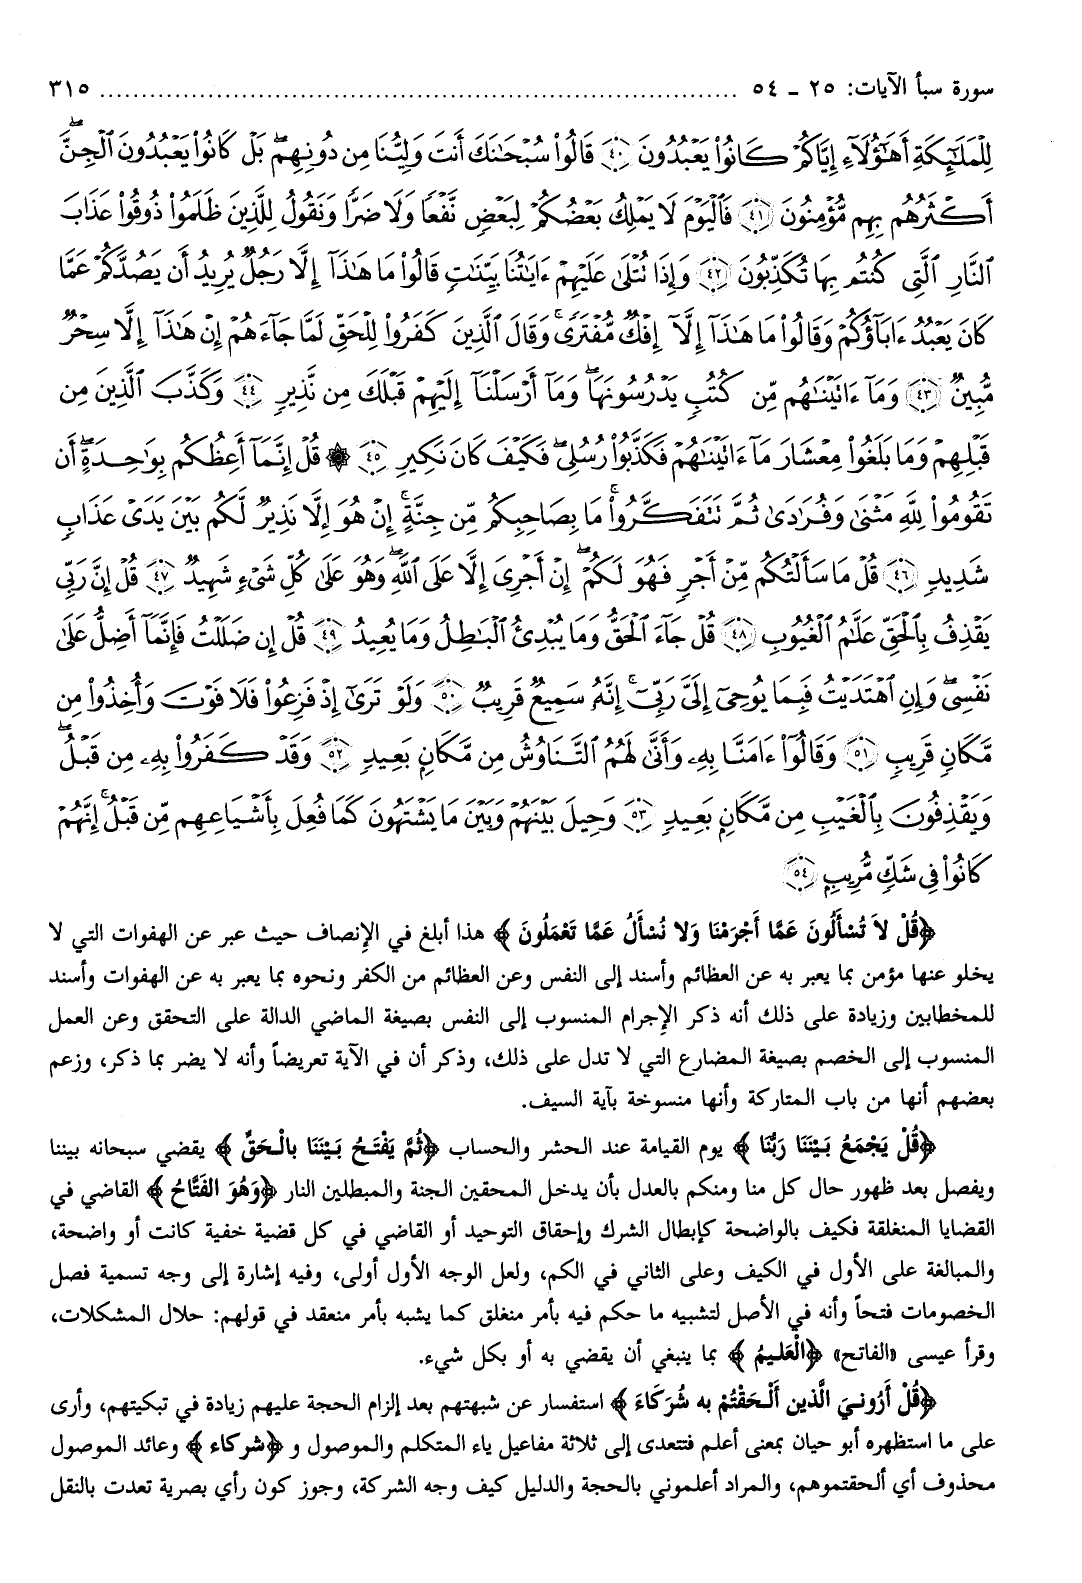 سورة سبأ الآيات: ٢٥ ـ ٥٤ ........................................................................ ٣١٥
لِلْمَلَٰٓئِكَةِ أَهَٰٓؤُلَآءِ إِيَّاكُمْ كَانُوا۟ يَعْبُدُونَ ﴿٤٠﴾ قَالُوا۟ سُبْحَٰنَكَ أَنتَ وَلِيُّنَا مِن دُونِهِم ۖ بَلْ كَانُوا۟ يَعْبُدُونَ ٱلْجِنَّ ۖ
أَكْثَرُهُم بِهِم مُّؤْمِنُونَ ﴿٤١﴾ فَٱلْيَوْمَ لَا يَمْلِكُ بَعْضُكُمْ لِبَعْضٍ نَّفْعًا وَلَا ضَرًّا وَنَقُولُ لِلَّذِينَ ظَلَمُوا۟ ذُوقُوا۟ عَذَابَ
ٱلنَّارِ ٱلَّتِى كُنتُم بِهَا تُكَذِّبُونَ ﴿٤٢﴾ وَإِذَا تُتْلَىٰ عَلَيْهِمْ ءَايَٰتُنَا بَيِّنَٰتٍ قَالُوا۟ مَا هَٰذَآ إِلَّا رَجُلٌ يُرِيدُ أَن يَصُدَّكُمْ عَمَّا
كَانَ يَعْبُدُ ءَابَآؤُكُمْ وَقَالُوا۟ مَا هَٰذَآ إِلَّآ إِفْكٌ مُّفْتَرًى ۚ وَقَالَ ٱلَّذِينَ كَفَرُوا۟ لِلْحَقِّ لَمَّا جَآءَهُمْ إِنْ هَٰذَآ إِلَّا سِحْرٌ
مُّبِينٌ ﴿٤٣﴾ وَمَآ ءَاتَيْنَٰهُم مِّن كُتُبٍ يَدْرُسُونَهَا ۖ وَمَآ أَرْسَلْنَآ إِلَيْهِمْ قَبْلَكَ مِن نَّذِيرٍ ﴿٤٤﴾ وَكَذَّبَ ٱلَّذِينَ مِن
قَبْلِهِمْ وَمَا بَلَغُوا۟ مِعْشَارَ مَآ ءَاتَيْنَٰهُمْ فَكَذَّبُوا۟ رُسُلِى ۖ فَكَيْفَ كَانَ نَكِيرِ ﴿٤٥﴾ ۞ قُلْ إِنَّمَآ أَعِظُكُم بِوَٰحِدَةٍ ۖ أَن
تَقُومُوا۟ لِلَّهِ مَثْنَىٰ وَفُرَٰدَىٰ ثُمَّ تَتَفَكَّرُوا۟ ۚ مَا بِصَاحِبِكُم مِّن جِنَّةٍ ۚ إِنْ هُوَ إِلَّا نَذِيرٌ لَّكُم بَيْنَ يَدَىْ عَذَابٍ
شَدِيدٍ ﴿٤٦﴾ قُلْ مَا سَأَلْتُكُم مِّنْ أَجْرٍ فَهُوَ لَكُمْ ۖ إِنْ أَجْرِىَ إِلَّا عَلَى ٱللَّهِ ۖ وَهُوَ عَلَىٰ كُلِّ شَىْءٍ شَهِيدٌ ﴿٤٧﴾ قُلْ إِنَّ رَبِّى
يَقْذِفُ بِٱلْحَقِّ عَلَّٰمُ ٱلْغُيُوبِ ﴿٤٨﴾ قُلْ جَآءَ ٱلْحَقُّ وَمَا يُبْدِئُ ٱلْبَٰطِلُ وَمَا يُعِيدُ ﴿٤٩﴾ قُلْ إِن ضَلَلْتُ فَإِنَّمَآ أَضِلُّ عَلَىٰ
نَفْسِى ۖ وَإِنِ ٱهْتَدَيْتُ فَبِمَا يُوحِىٓ إِلَىَّ رَبِّىٓ ۚ إِنَّهُۥ سَمِيعٌ قَرِيبٌ ﴿٥٠﴾ وَلَوْ تَرَىٰٓ إِذْ فَزِعُوا۟ فَلَا فَوْتَ وَأُخِذُوا۟ مِن
مَّكَانٍ قَرِيبٍ ﴿٥١﴾ وَقَالُوٓا۟ ءَامَنَّا بِهِۦ وَأَنَّىٰ لَهُمُ ٱلتَّنَاوُشُ مِن مَّكَانٍۭ بَعِيدٍ ﴿٥٢﴾ وَقَدْ كَفَرُوا۟ بِهِۦ مِن قَبْلُ ۖ
وَيَقْذِفُونَ بِٱلْغَيْبِ مِن مَّكَانٍۭ بَعِيدٍ ﴿٥٣﴾ وَحِيلَ بَيْنَهُمْ وَبَيْنَ مَا يَشْتَهُونَ كَمَا فُعِلَ بِأَشْيَاعِهِم مِّن قَبْلُ ۚ إِنَّهُمْ
كَانُوا۟ فِى شَكٍّ مُّرِيبٍۭ ﴿٥٤﴾
﴿قُلْ لاَ تُسْأَلُونَ عَمَّا أَجْرَمْنَا وَلا نُسْأَلُ عَمَّا تَعْمَلُونَ﴾ هذا أبلغ في الإنصاف حيث عبر عن الهفوات التي لا
يخلو عنها مؤمن بما يعبر به عن العظائم وأسند إلى النفس وعن العظائم من الكفر ونحوه بما يعبر به عن الهفوات وأسند
للمخطابين وزيادة على ذلك أنه ذكر الإجرام المنسوب إلى النفس بصيغة الماضي الدالة على التحقق وعن العمل
المنسوب إلى الخصم بصيغة المضارع التي لا تدل على ذلك، وذكر أن في الآية تعريضاً وأنه لا يضر بما ذكر، وزعم
بعضهم أنها من باب المتاركة وأنها منسوخة بآية السيف.
﴿قُلْ يَجْمَعُ بَيْنَنَا رَبُّنَا﴾ يوم القيامة عند الحشر والحساب ﴿ثُمَّ يَفْتَحُ بَيْنَنَا بالْحَقِّ﴾ يقضي سبحانه بيننا
ويفصل بعد ظهور حال كل منا ومنكم بالعدل بأن يدخل المحقين الجنة والمبطلين النار ﴿وَهُوَ الفَتَّاحُ﴾ القاضي في
القضايا المنغلقة فكيف بالواضحة كإبطال الشرك وإحقاق التوحيد أو القاضي في كل قضية خفية كانت أو واضحة،
والمبالغة على الأول في الكيف وعلى الثاني في الكم، ولعل الوجه الأول أولى، وفيه إشارة إلى وجه تسمية فصل
الخصومات فتحاً وأنه في الأصل لتشبيه ما حكم فيه بأمر منغلق كما يشبه بأمر منعقد في قولهم: حلال المشكلات،
وقرأ عيسى «الفاتح» ﴿الْعَليمُ﴾ بما ينبغي أن يقضي به أو بكل شيء.
﴿قُلْ أَرُونيَ الَّذين أَلْحَقْتُمْ به شُرَكَاءَ﴾ استفسار عن شبهتهم بعد إلزام الحجة عليهم زيادة في تبكيتهم، وأرى
على ما استظهره أبو حيان بمعنى أعلم فتتعدى إلى ثلاثة مفاعيل ياء المتكلم والموصول و ﴿شركاء﴾ وعائد الموصول
محذوف أي ألحقتموهم، والمراد أعلموني بالحجة والدليل كيف وجه الشركة، وجوز كون رأي بصرية تعدت بالنقل